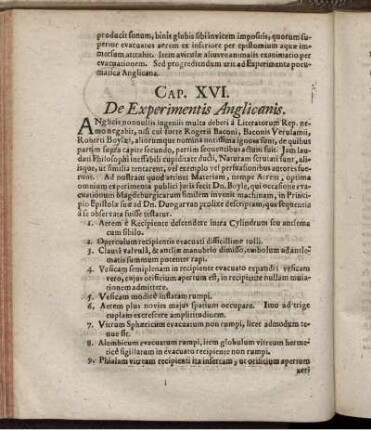 producit sonum, binis globis sibi invicem impositis, quorum superior
evacuatus aerem ex inferiore per epistomium aquæ immersum
attrahit. Item aviculæ aliusve animalis exanimatio per
evacuationem. Sed progrediendum erit ad Experimenta pneumatica
Anglicana.
CAP. XVI.
De Experimentis Anglicanis.
ANglicis nonnullis ingeniis multa deberi à Literatorum Rep. nemo
negabit, nisi cui forte Rogerii Baconi, Baconis Verulamii,
Roberti Boylæi, aliorumque nomina notissima ignota sunt, de quibus
partim supra capite secundo, partim sequentibus actum fuit. Jam laudati
Philosophi ineffabili cupiditate ducti, Naturam scrutati sunt, aliisque,
ut similia tentarent, vel exemplo vel persuasionibus autores fuerunt.
Ad nostram quod attinet Materiam, nempe Aerem, optima
omnium experimenta publici juris fecit Dn. Boyle, qui occasione evacuationum
Magdeburgicarum similem invenit machinam, in Principio
Epistolæ suæ ad Dn. Dungarvan prolixe descriptam, quæ sequentia
à se observata fuisse testatur.
1. Aerem è Recipiente descendere intra Cylindrum seu antliam
cum sibilo.
2. Operculum recipientis evacuati difficillime tolli.
3. Clausa valvulâ, & antliæ manubrio dimisso, embolum ad
summum potenter rapi.
4. Vesicam semiplenam in recipiente evacuato expandi: vesicam
vero, cujus orificium apertum est, in recipiente nullam mutationem
admittere.
5. Vesicam modicè inflatam rumpi.
6. Aerem plus novies majus spatium occupare. Imo ad trigecuplam
excrescere amplitudinem.
7. Vitrum Sphæricum evacuatum non rumpi, licet admodum tenue
sit.
8. Alembicum evacuatum rumpi, item globulum vitreum hermeticè
sigillatum in evacuato recipiente non rumpi.
9. Phialam vitream recipienti ita insertam, ut orificium apertum